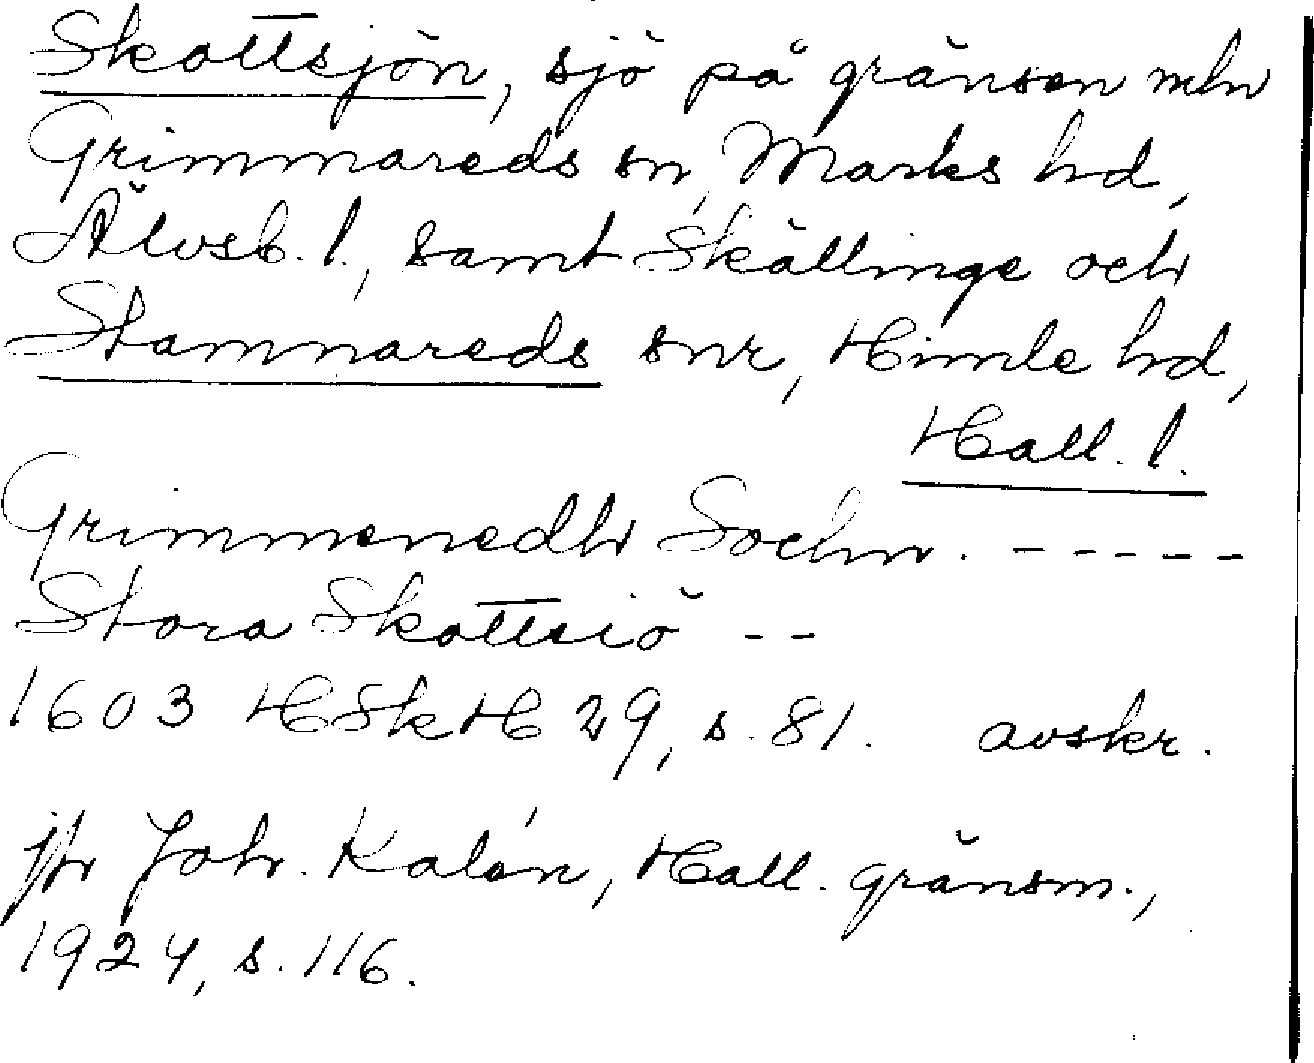 Skottsjön, sjö på gränsen mln
Grimmareds sn, Marks hd,
Älvsb. l., samt Skällinge och
Stamnareds snr, Himle hd,
Hall. l.
Grimmeredh Sochn. - - - - -
Stora Skottsiö - -
1603 HSkH 29, s. 81. avskr.
jfr Joh. Kalén, Hall. gränsm.,
1924, s. 116.